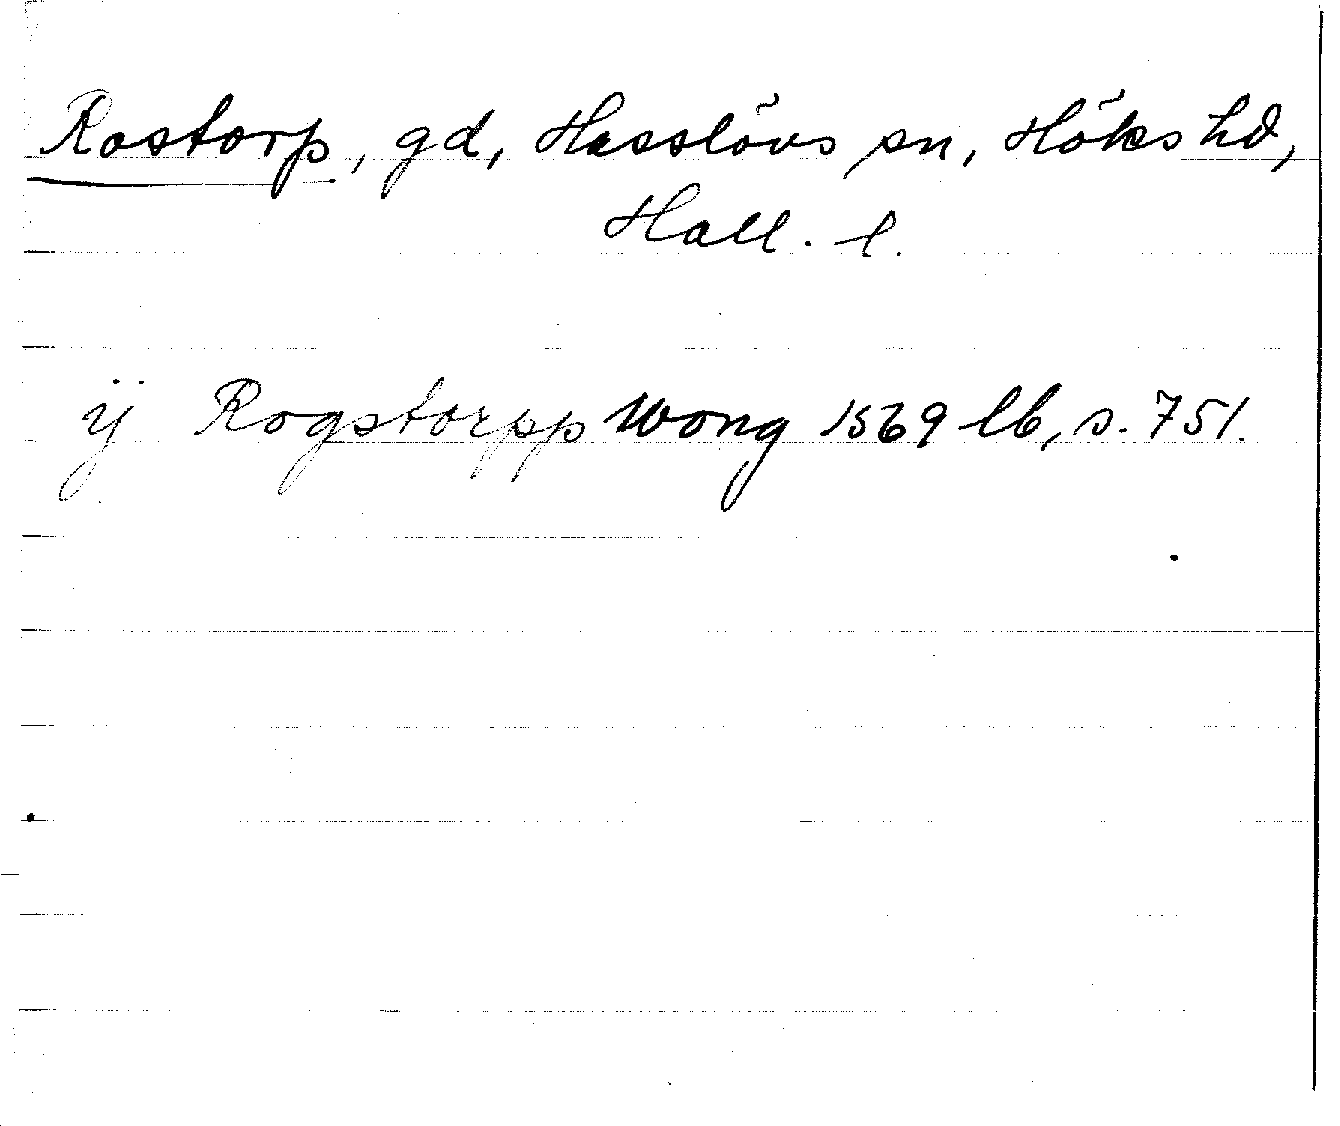 Rostorp, gd, Hasslövs sn, Höks hd,
Hall. l.
ij Rogstorpp wong 1569 lb, s. 751.